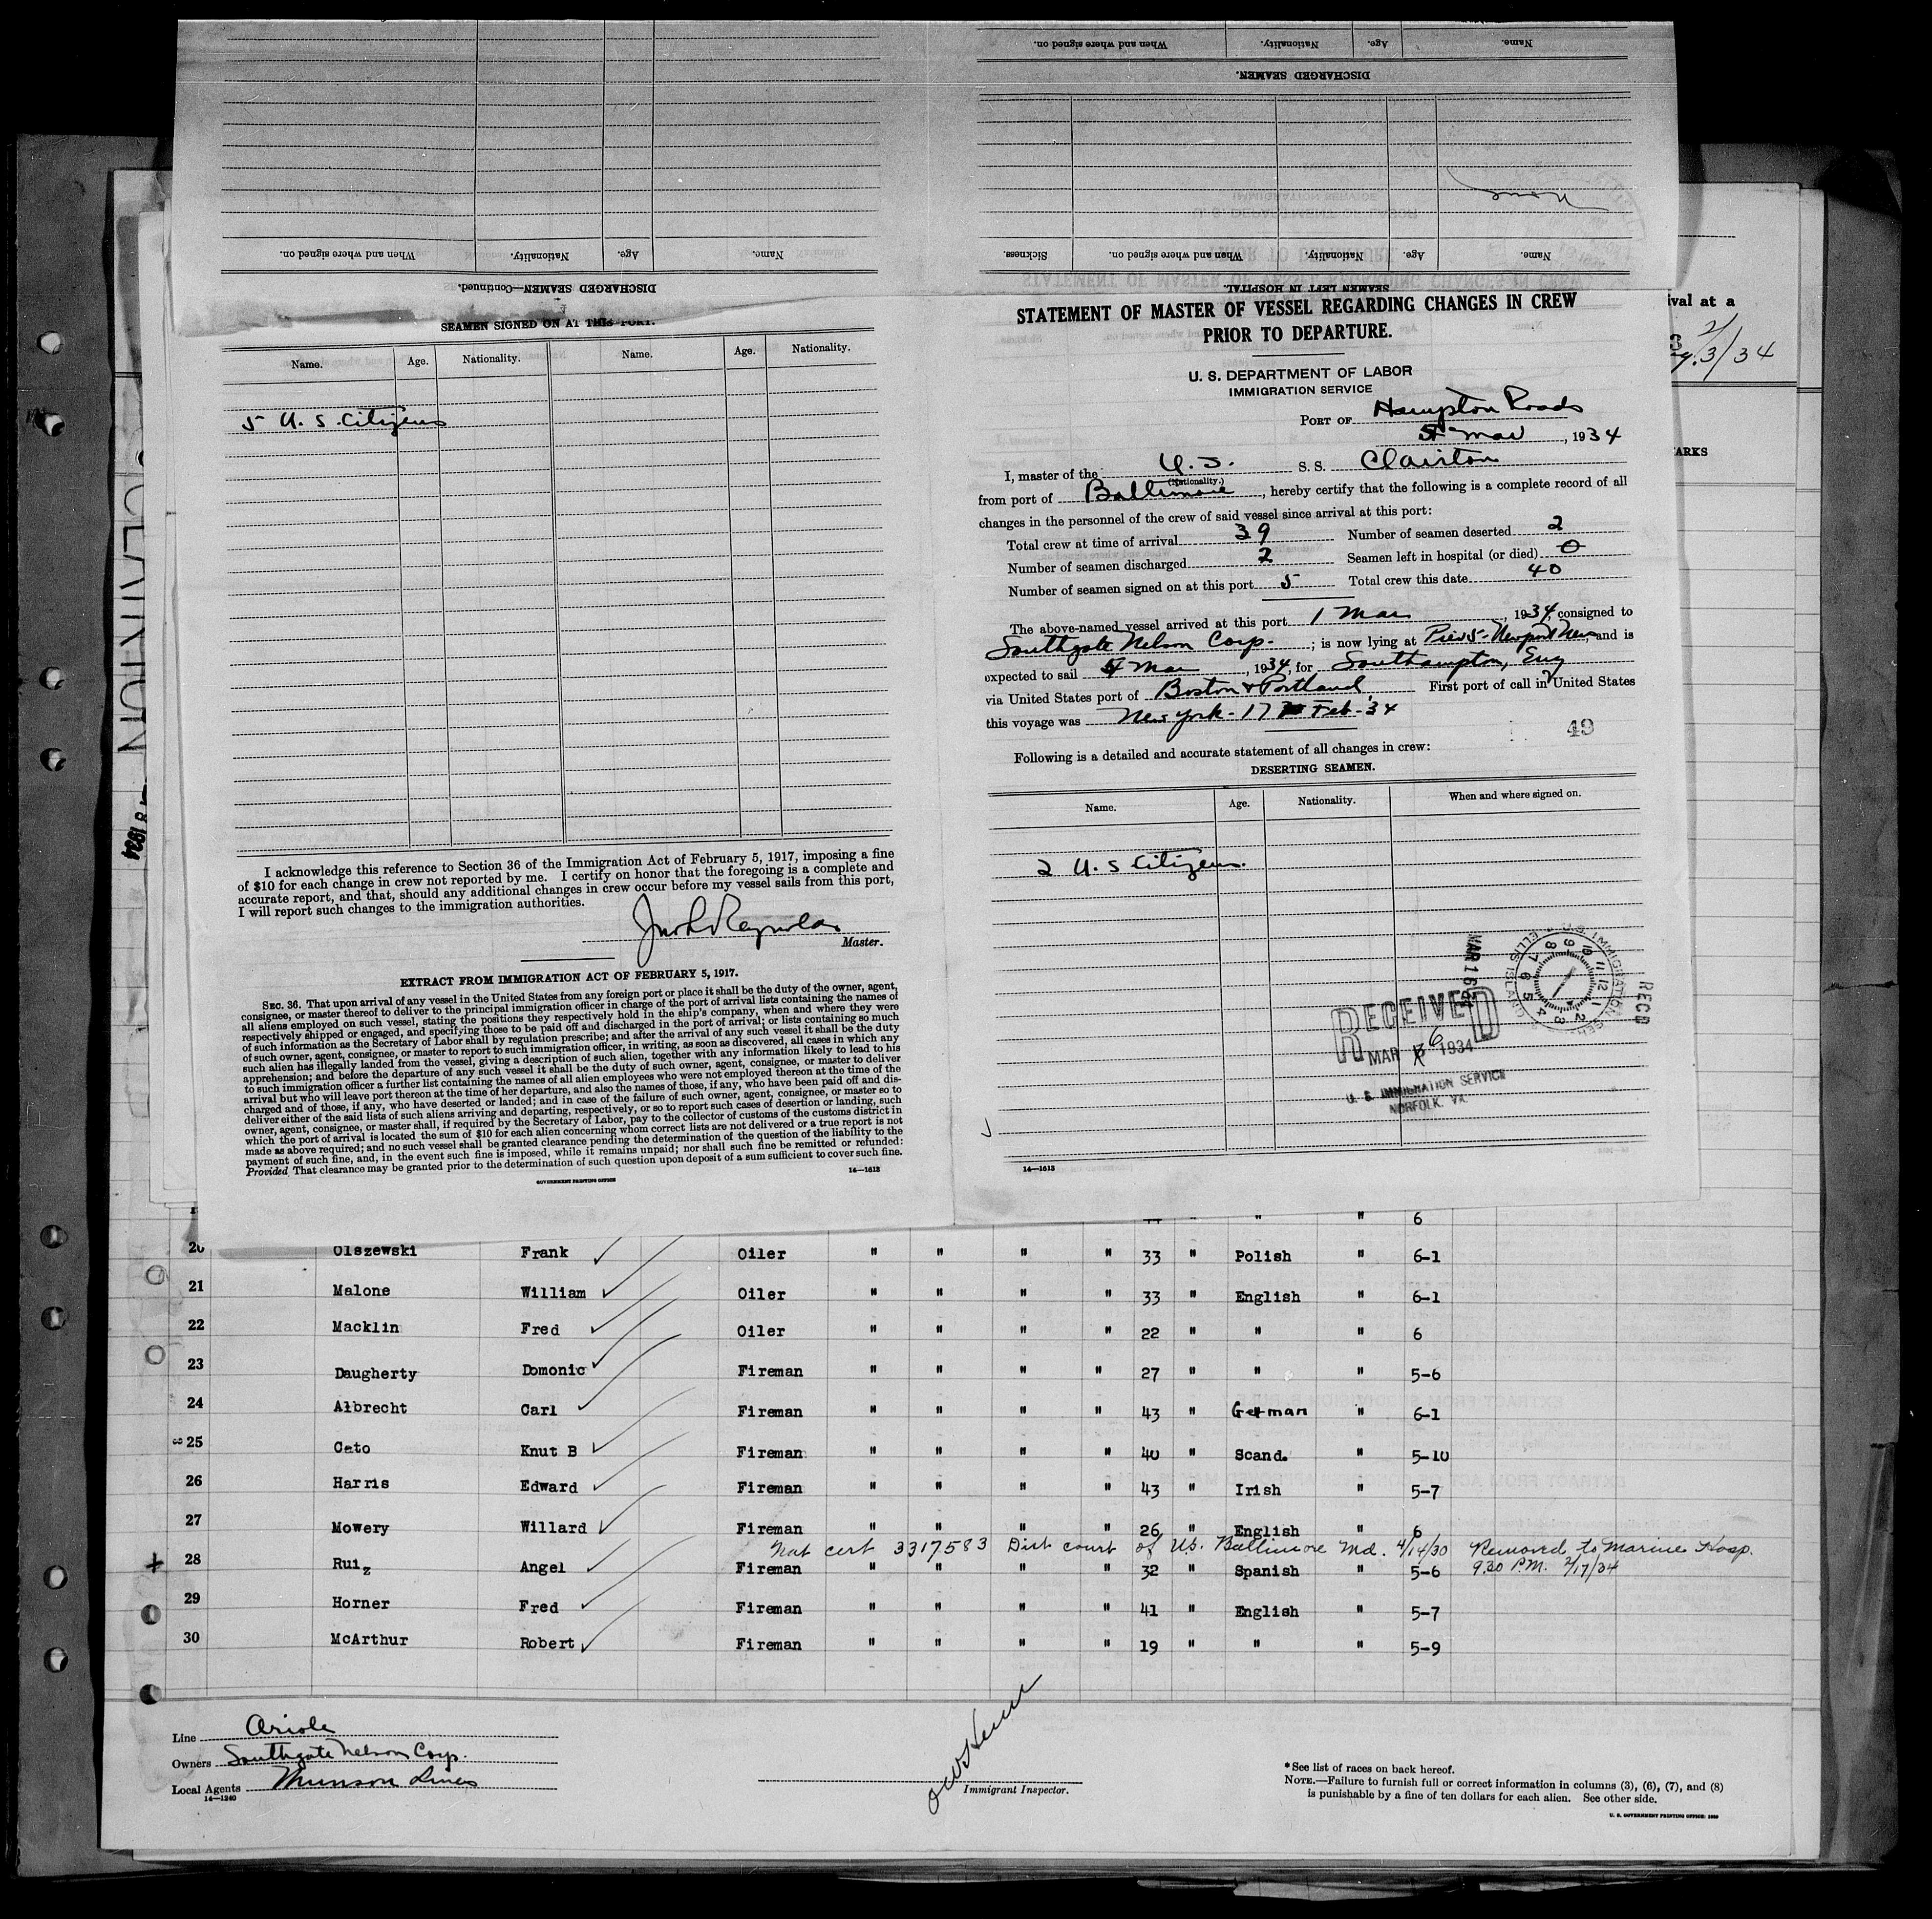 When and where signed on.
Nationality.
Age.
Name.
DISCHARGED SEAMEN—Continued.
When and where signed on.
Nationality.
Age.
Name.
DISCHARGED SEAMEN.
None
Sickness.
When and where signed on.
Nationality.
Age.
Name.
SEAMEN LEFT IN HOSPITAL.
SEAMEN SIGNED ON AT THIS PORT.
Name. Age. Nationality. Name. Age. Nationality.
5 U. S. Citizens
I acknowledge this reference to Section 36 of the Immigration Act of February 5, 1917, imposing a fine
of $10 for each change in crew not reported by me. I certify on honor that the foregoing is a complete and
accurate report, and that, should any additional changes in crew occur before my vessel sails from this port,
I will report such changes to the immigration authorities.
Reynolds
Master.
EXTRACT FROM IMMIGRATION ACT OF FEBRUARY 5, 1917.
SEC. 36. That upon arrival of any vessel in the United States from any foreign port or place it shall be the duty of the owner, agent,
consignee, or master thereof to deliver to the principal immigration officer in charge of the port of arrival lists containing the names of
all aliens employed on such vessel, stating the positions they respectively hold in the ship's company, when and where they were
respectively shipped or engaged, and specifying those to be paid off and discharged in the port of arrival; or lists containing so much
of such information as the Secretary of Labor shall by regulation prescribe; and after the arrival of any such vessel it shall be the duty
of such owner, agent, consignee, or master to report to such immigration officer, in writing, as soon as discovered, all cases in which any
such alien has illegally landed from the vessel, giving a description of such alien, together with any information likely to lead to his
apprehension; and before the departure of any such vessel it shall be the duty of such owner, agent, consignee, or master to deliver
to such immigration officer a further list containing the names of all alien employees who were not employed thereon at the time of the
arrival but who will leave port thereon at the time of her departure, and also the names of those, if any, who have been paid off and dis-
charged and of those, if any, who have deserted or landed; and in case of the failure of such owner, agent, consignee, or master so to
deliver either of the said lists of such aliens arriving and departing, respectively, or so to report such cases of desertion or landing, such
owner, agent, consignee, or master shall, if required by the Secretary of Labor, pay to the collector of customs of the customs district in
which the port of arrival is located the sum of $10 for each alien concerning whom correct lists are not delivered or a true report is not
made as above required; and no such vessel shall be granted clearance pending the determination of the question of the liability to the
payment of such fine, and, in the event such fine is imposed, while it remains unpaid; nor shall such fine be remitted or refunded:
Provided, That clearance may be granted prior to the determination of such question upon deposit of a sum sufficient to cover such fine.
GOVERNMENT PRINTING OFFICE 14—1613
STATEMENT OF MASTER OF VESSEL REGARDING CHANGES IN CREW
PRIOR TO DEPARTURE.
U. S. DEPARTMENT OF LABOR
IMMIGRATION SERVICE
PORT OF Hampton Roads
Mar, 1934
I, master of the U.S. S. S. Clairton
(Nationality.)
from port of Baltimore, hereby certify that the following is a complete record of all
changes in the personnel of the crew of said vessel since arrival at this port:
Total crew at time of arrival 39 Number of seamen deserted 2
Number of seamen discharged 2 Seamen left in hospital (or died) 0
Number of seamen signed on at this port 5 Total crew this date 40
The above-named vessel arrived at this port 1 Mar, 1934, consigned to
Southgate Nelson Corp. ; is now lying at Pier 5 - Newport News and is
expected to sail Mar, 1934, for Southampton, Eng
via United States port of Boston & Portland. First port of call in United States
this voyage was New York - 17 Feb - 34
49
Following is a detailed and accurate statement of all changes in crew:
DESERTING SEAMEN.
Name. Age. Nationality. When and where signed on.
2 U. S Citizens.
RECEIVED
MAR 6 1934
U. S. IMMIGRATION SERVICE
NORFOLK, VA.
MAR 16
RECD
ELLIS ISLAND
14—1613
ival at a
3/34
ARKS
CLAIRTON
1934
" " 6
20 Olszewski Frank Oiler " " " " 33 " Polish " 6-1
21 Malone William Oiler " " " " 33 " English " 6-1
22 Macklin Fred Oiler " " " " 22 " " " 6
23 Daugherty Domonic Fireman " " " " 27 " " " 5-6
24 Albrecht Carl Fireman " " " " 43 " German " 6-1
25 Cato Knut B Fireman " " " " 40 " Scand. " 5-10
26 Harris Edward Fireman " " " " 43 " Irish " 5-7
27 Mowery Willard Fireman " " " " 26 " English " 6
Nat cert 3317583 Dist court of U.S. Baltimore Md. 4/14/30 Removed to Marine Hosp.
28 Ruiz Angel Fireman " " " " 32 " Spanish " 5-6 9.30 P.M. 2/17/34
29 Horner Fred Fireman " " " " 41 " English " 5-7
30 McArthur Robert Fireman " " " " 19 " " " 5-9
Line Oriole
Owners Southgate Nelson Corp.
Local Agents Munson Lines
14—1240
Immigrant Inspector.
* See list of races on back hereof.
NOTE.—Failure to furnish full or correct information in columns (3), (6), (7), and (8)
is punishable by a fine of ten dollars for each alien. See other side.
U. S. GOVERNMENT PRINTING OFFICE: 1930